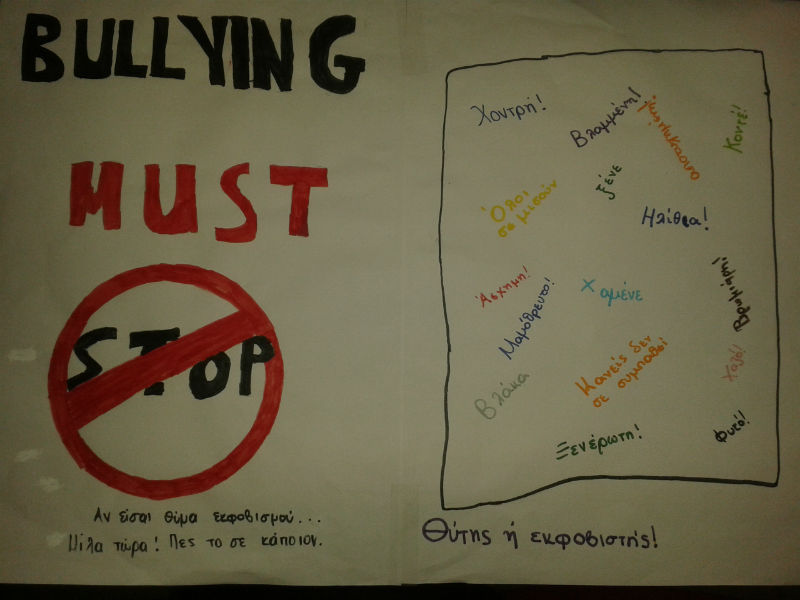 BULLYING
MUST
STOP
Αν είσαι θύμα εκφοβισμού...
Μίλα τώρα! Πες το σε κάποιον.
Χοντρή!
Βλαμμένη!
Κοντέ!
Όλοι
σε μισούν
ξένε
Ηλίθια!
Άσχημη!
Μαμόθρευτο!
Χαμένε
Βρωμιάρη!
Χαζό!
Κανείς δεν
σε συμπαθεί
Βλάκα
Ξενέρωτη!
Φυτό!
Θύτης ή εκφοβιστής!